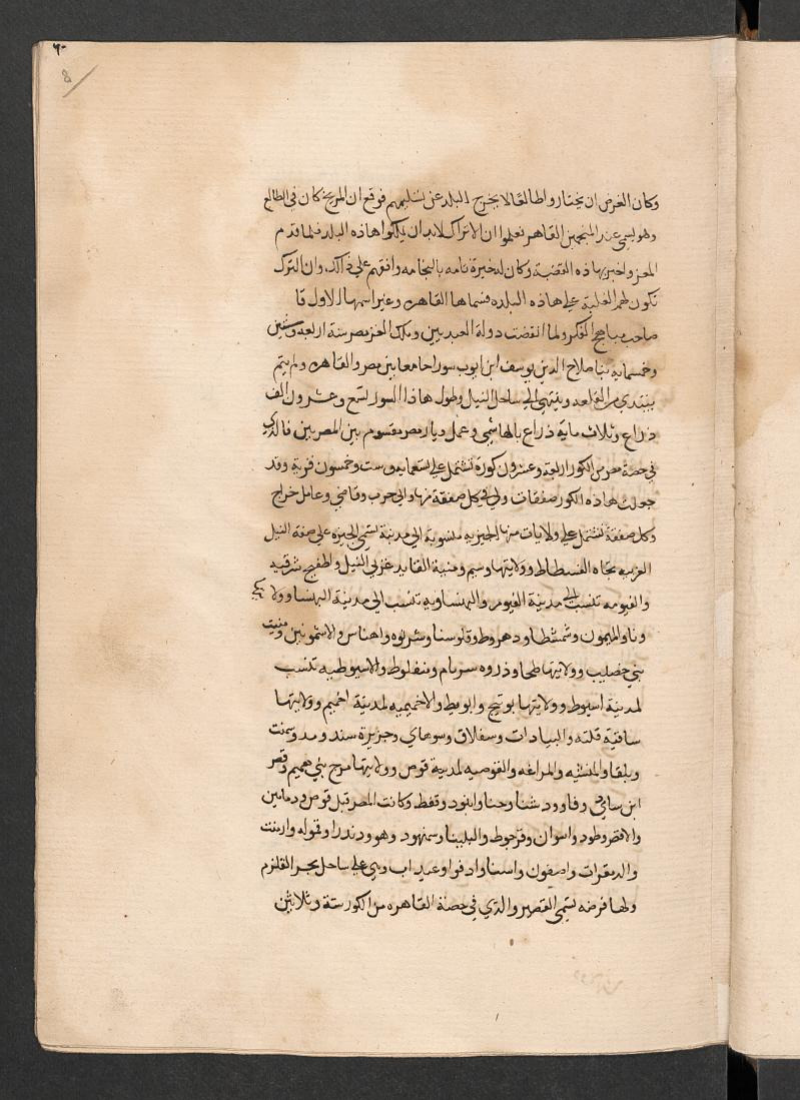 وكان الغرض ان يختاروا طالعا لا يخرج البلد عن نسلهم فوقع ان المريخ كان في الطالع
وهو يسمى عند المنجمين القاهر فعلموا ان الاتراك لابد ان يملكوا هاذه البلد فلما قدم
المعز واخبر بهاذه القضية وكان له خبرة تامة بالنجامه وافقهم على ذالك وان الترك
تكون لهم الغلبة على هاذه البلده فسماها القاهره وغير اسمها الاول قا
صاحب مباهج الفكر ولما انقضت دولة العبيديين وملك الغز مصر سنة اربعة وستين
وخمسمايه بنا صلاح الدين يوسف ابن ايوب سورا جامعا بين مصر والقاهره ولم يتم
يبتدي من القلعه وينتهي الى ساحل النيل وطول هاذا السور تسع وعشرون الف
ذراع وثلاث ماية ذراع بالهاشمي وعمل ديار مصر مقسوم بين المصرين فالذي
في حصة مصر من الكور اربعة وعشرون كورة تشتمل على تسعمايه وست وخمسون قرية وقد
جعلت هاذه الكور صفقات وفي كل صفقة منها والي حرب وقاضي وعامل خراج
وكل صفقة تشتمل على ولايات منها الجيزيه منسوبة الى مدينة تسمى الجيزه على ضفة النيل
الغربيه تجاه الفسطاط وولايتها وسيم ومنية القايد غربي النيل واطفيح شرقيه
والفيوميه تنسب الى مدينة الفيوم والبهنساويه تنسب الى مدينة البهنسا وولا يتها
ونا والميمون وشمشطا ودهروط وقلوسنا وشرلوه واهناس والاشمونين ومنيت
بني خصيب وولايتها طحا وذروه سربام ومنفلوط والاسيوطيه تنسب
لمدينة اسيوط وولايتها بوتيج وابويط والاخميميه لمدينة اخميم وولايتها
ساقية قلته والبيادات وسفلاق وسوهاي وجزيرة سندويد وسمنت
وبلقا والمنشيه والمراغه والقوصيه لمدينة قوص وولايتها مرج بني هميم وقصر
ابن سادي وفاوود شنا وحنا وابنود وقفط وكانت المصر قبل قوص ودمامين
والاقصر وطود واسوان وفرجوط والبلينا وسمهود وهو ودندرا وقموله وارمنت
والدمقرات واصفون واسنا وادفوا وعيداب وهي على ساحل بحر القلزم
ولها فرضه تسمى القصير والذي في حصة القاهره من الكور ستة وثلاثين